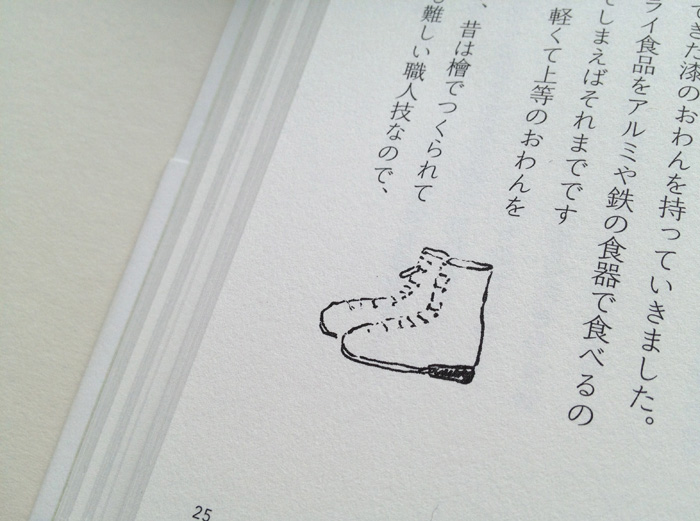 てきた漆のおわんを持っていきました。
ライ食品をアルミや鉄の食器で食べるの
てしまえばそれまでです
軽くて上等のおわんを
、昔は檜でつくられて
難しい職人技なので、
25